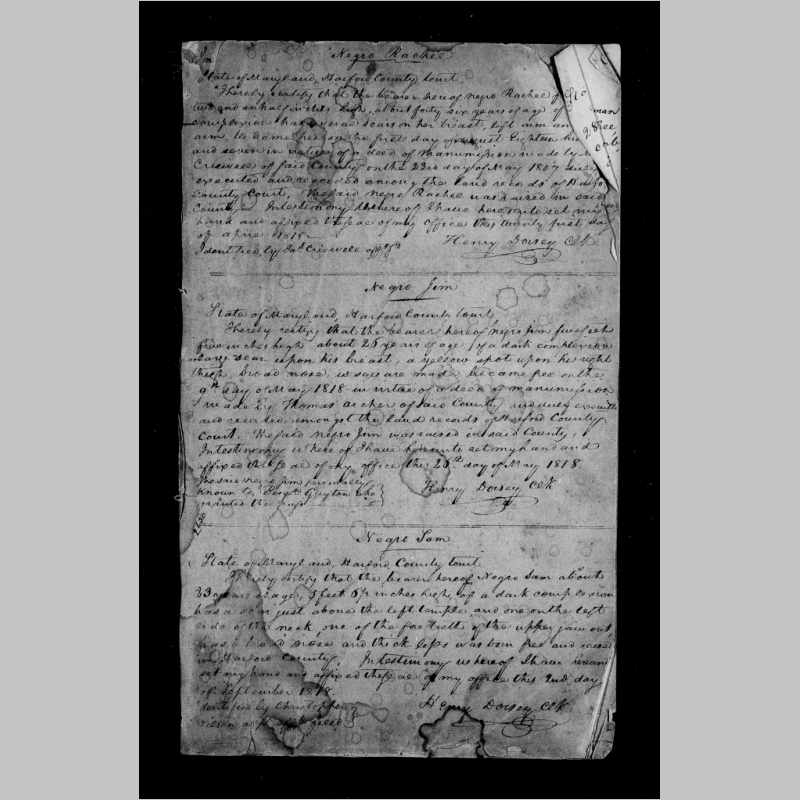 Negro Rachel
State of Maryland, Harford County Court
I hereby certify that the bearer hereof negro Rachel
two and an half inches high, about forty six years of age of
complexion has several scars on her breast, left arm and
arm, became free on the first day of August Eighteen
and seven in virtue of a deed of manumission made by
Creswell of said County on the 23rd day of May 1807 duly
executed and recorded among the land records of Harford
County Court, The said negro Rachel was raised in said
County. In testimony whereof I have hereunto set my
hand and affixed the seal of my office this twenty first day
of April 1818
Identified by Jas. Creswell Henry Dorsey Clk
man
free
Negro Jim
State of Maryland, Harford County Court,
I hereby certify that the bearer hereof negro Jim five feet
five inches high about 25 years of age, of a dark complexion
scar upon his breast, a yellow spot upon his right
thigh, broad nose, & square made became free on the
9th day of May 1818 in virtue of a deed of manumission
made by Thomas Archer of said County and duly executed
and recorded amongst the land records of Harford County
Court. The said negro Jim was raised in said County,
In testimony whereof I have hereunto set my hand and
affixed the seal of my office the 26th day of May 1818
The said negro Jim personally
known to Guyton who Henry Dorsey Clk
the
Negro Sam
State of Maryland, Harford County Court
I hereby certify that the bearer hereof Negro Sam about
23 years of age, 5 feet inches high, of a dark complexion
has a scar just above the left temple, and one on the left
side of the neck, one of the fore teeth of the upper jaw out
broad nose and thick lips was born free and raised
in Harford County, In testimony whereof I have hereunto
set my hand and affixed the seal of my office this 2nd day
of September 1818
Identified by Christopher Henry Dorsey Clk